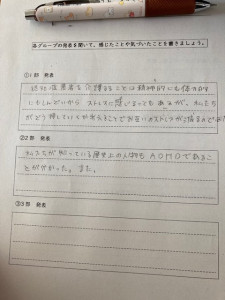 各グループの発表を聞いて、感じたことや気づいたことを書きましょう。
①1班 発表
認知症患者を介護することは精神的にも体力的
にもしんどいから ストレスに なることもあるが、私たち
がどう接していくか考えることでお互いのストレスが
②2班 発表
私たちが知っている歴史上の人物も ADHDであるこ
とが分かった。また、
③3班 発表